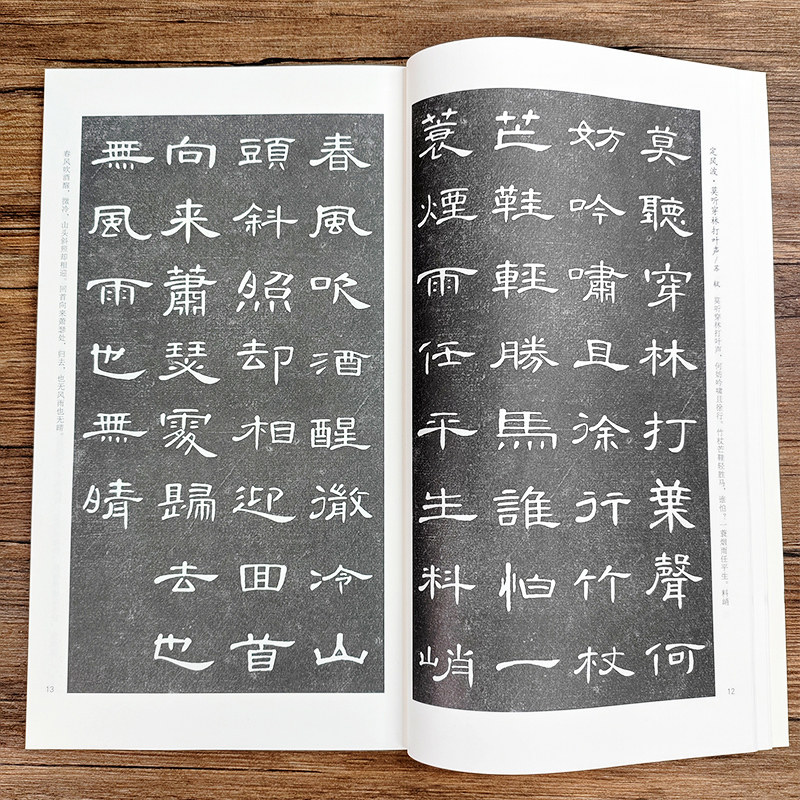 定风波·莫听穿林打叶声/苏轼 莫听穿林打叶声，何妨吟啸且徐行。竹杖芒鞋轻胜马，谁怕？一蓑烟雨任平生。料峭
莫聽穿林打葉聲何
妨吟嘯且徐行竹杖
芒鞋輕勝馬誰怕一
蓑煙雨任平生料峭
12
春風吹酒醒微冷山
頭斜照却相迎囬首
向来蕭瑟處歸去也
無風雨也無晴
春风吹酒醒，微冷，山头斜照却相迎。回首向来萧瑟处，归去，也无风雨也无晴。
13